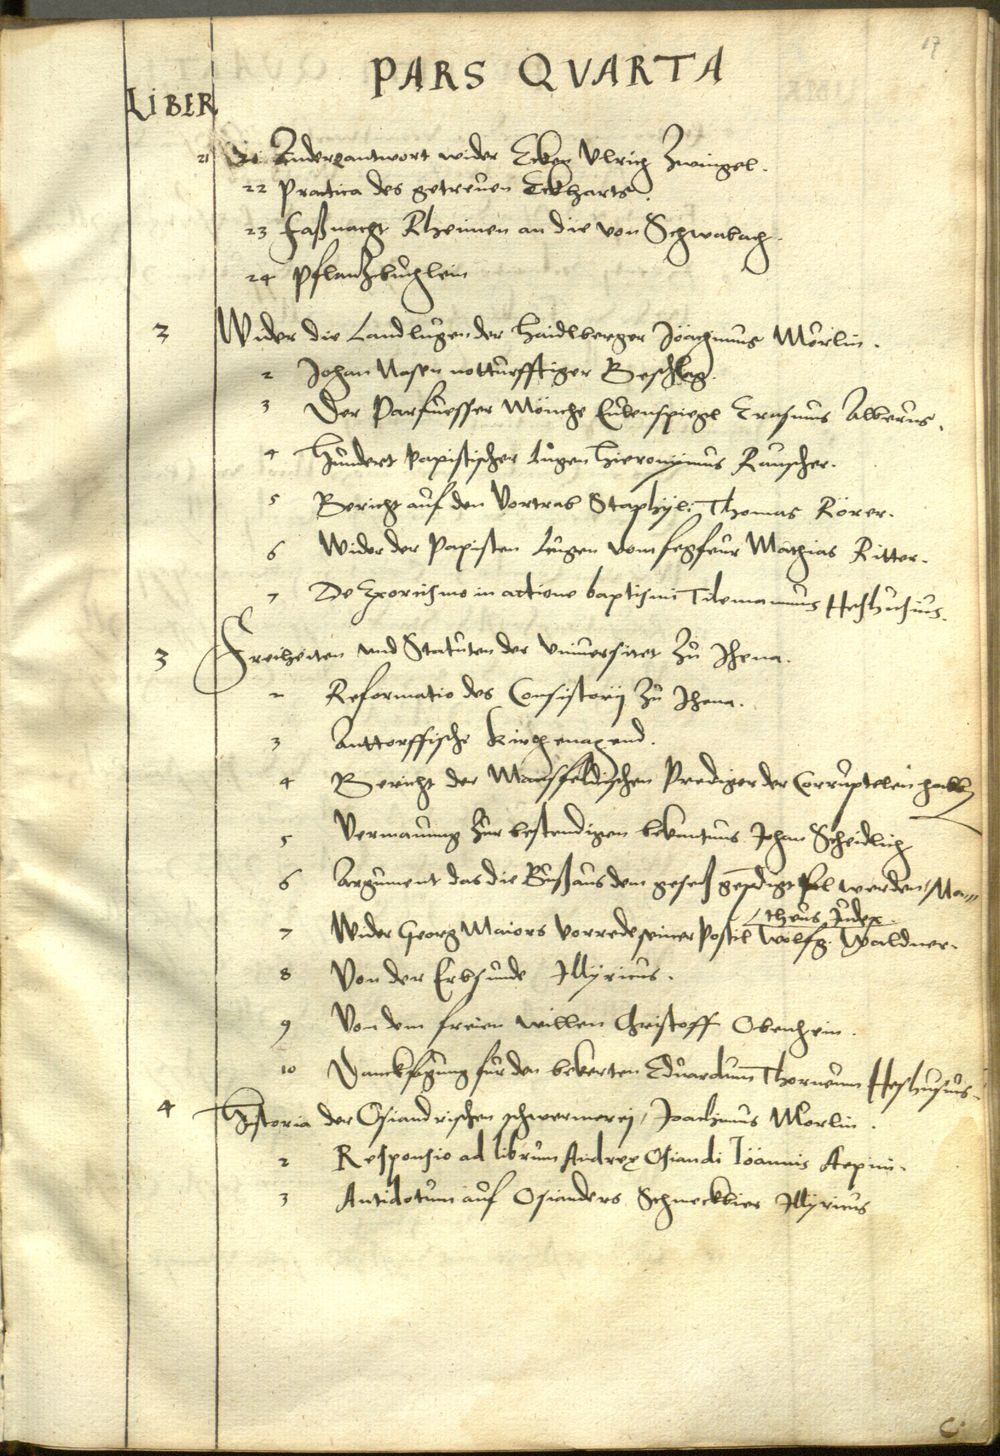 17
PARS QVARTA
LIBER
21 Ander antwort wider Ecken Vlrich Zwingel.
22 Practica des getreuen Eckharts.
23 Faßnacht Rheimen an die von Schwabach.
24 Pflantzbuchlein
2 Wider die Landlugen der Haidlberger Joachimus Mörlin.
2 Johan Nasen notturfftiger Beschlag.
3 Der Parfuesser Mönche Eulenspiegl Erasmus Alberus.
4 Hundert papistischer lugen Hieronymus Rauscher.
5 Bericht auf den Vortrab Staphyli: Thomas Rörer.
6 Wider der Papisten lugen vom fegfeur Mathias Ritter.
7 De Exorcismo in actione baptismi Tilemannus Heshusius.
3 Freiheiten und Statuten der Vniuersitet zu Jhena.
2 Reformatio des Consistorij zu Jhena.
3 Anttorffische Kirchenagend.
4 Bericht der Mansfeldischen Prediger der Corruptelen halb
5 Vermanung zur bestendigen bekantnus Johan Scheidlich
6 Argument das die Buß aus dem gesetz gepredigt sol werden / Ma=
theus Judex.
7 Wider Georg Maiors Vorrede seiner Postil Wolfg. Waldner.
8 Von der Erbsunde Illyricus.
9 Von dem freien willen Christoff Obenhein.
10 Dancksagung fur den bekerten Eduardum Thorneum Heshusius.
4 Historia der Osiandrischen schwermerej / Joachimus Morlin.
2 Responsio ad librum Andreæ Osiandi Joannis Aepini.
3 Antidotum auf Osianders Schmeckbier Illyricus
C